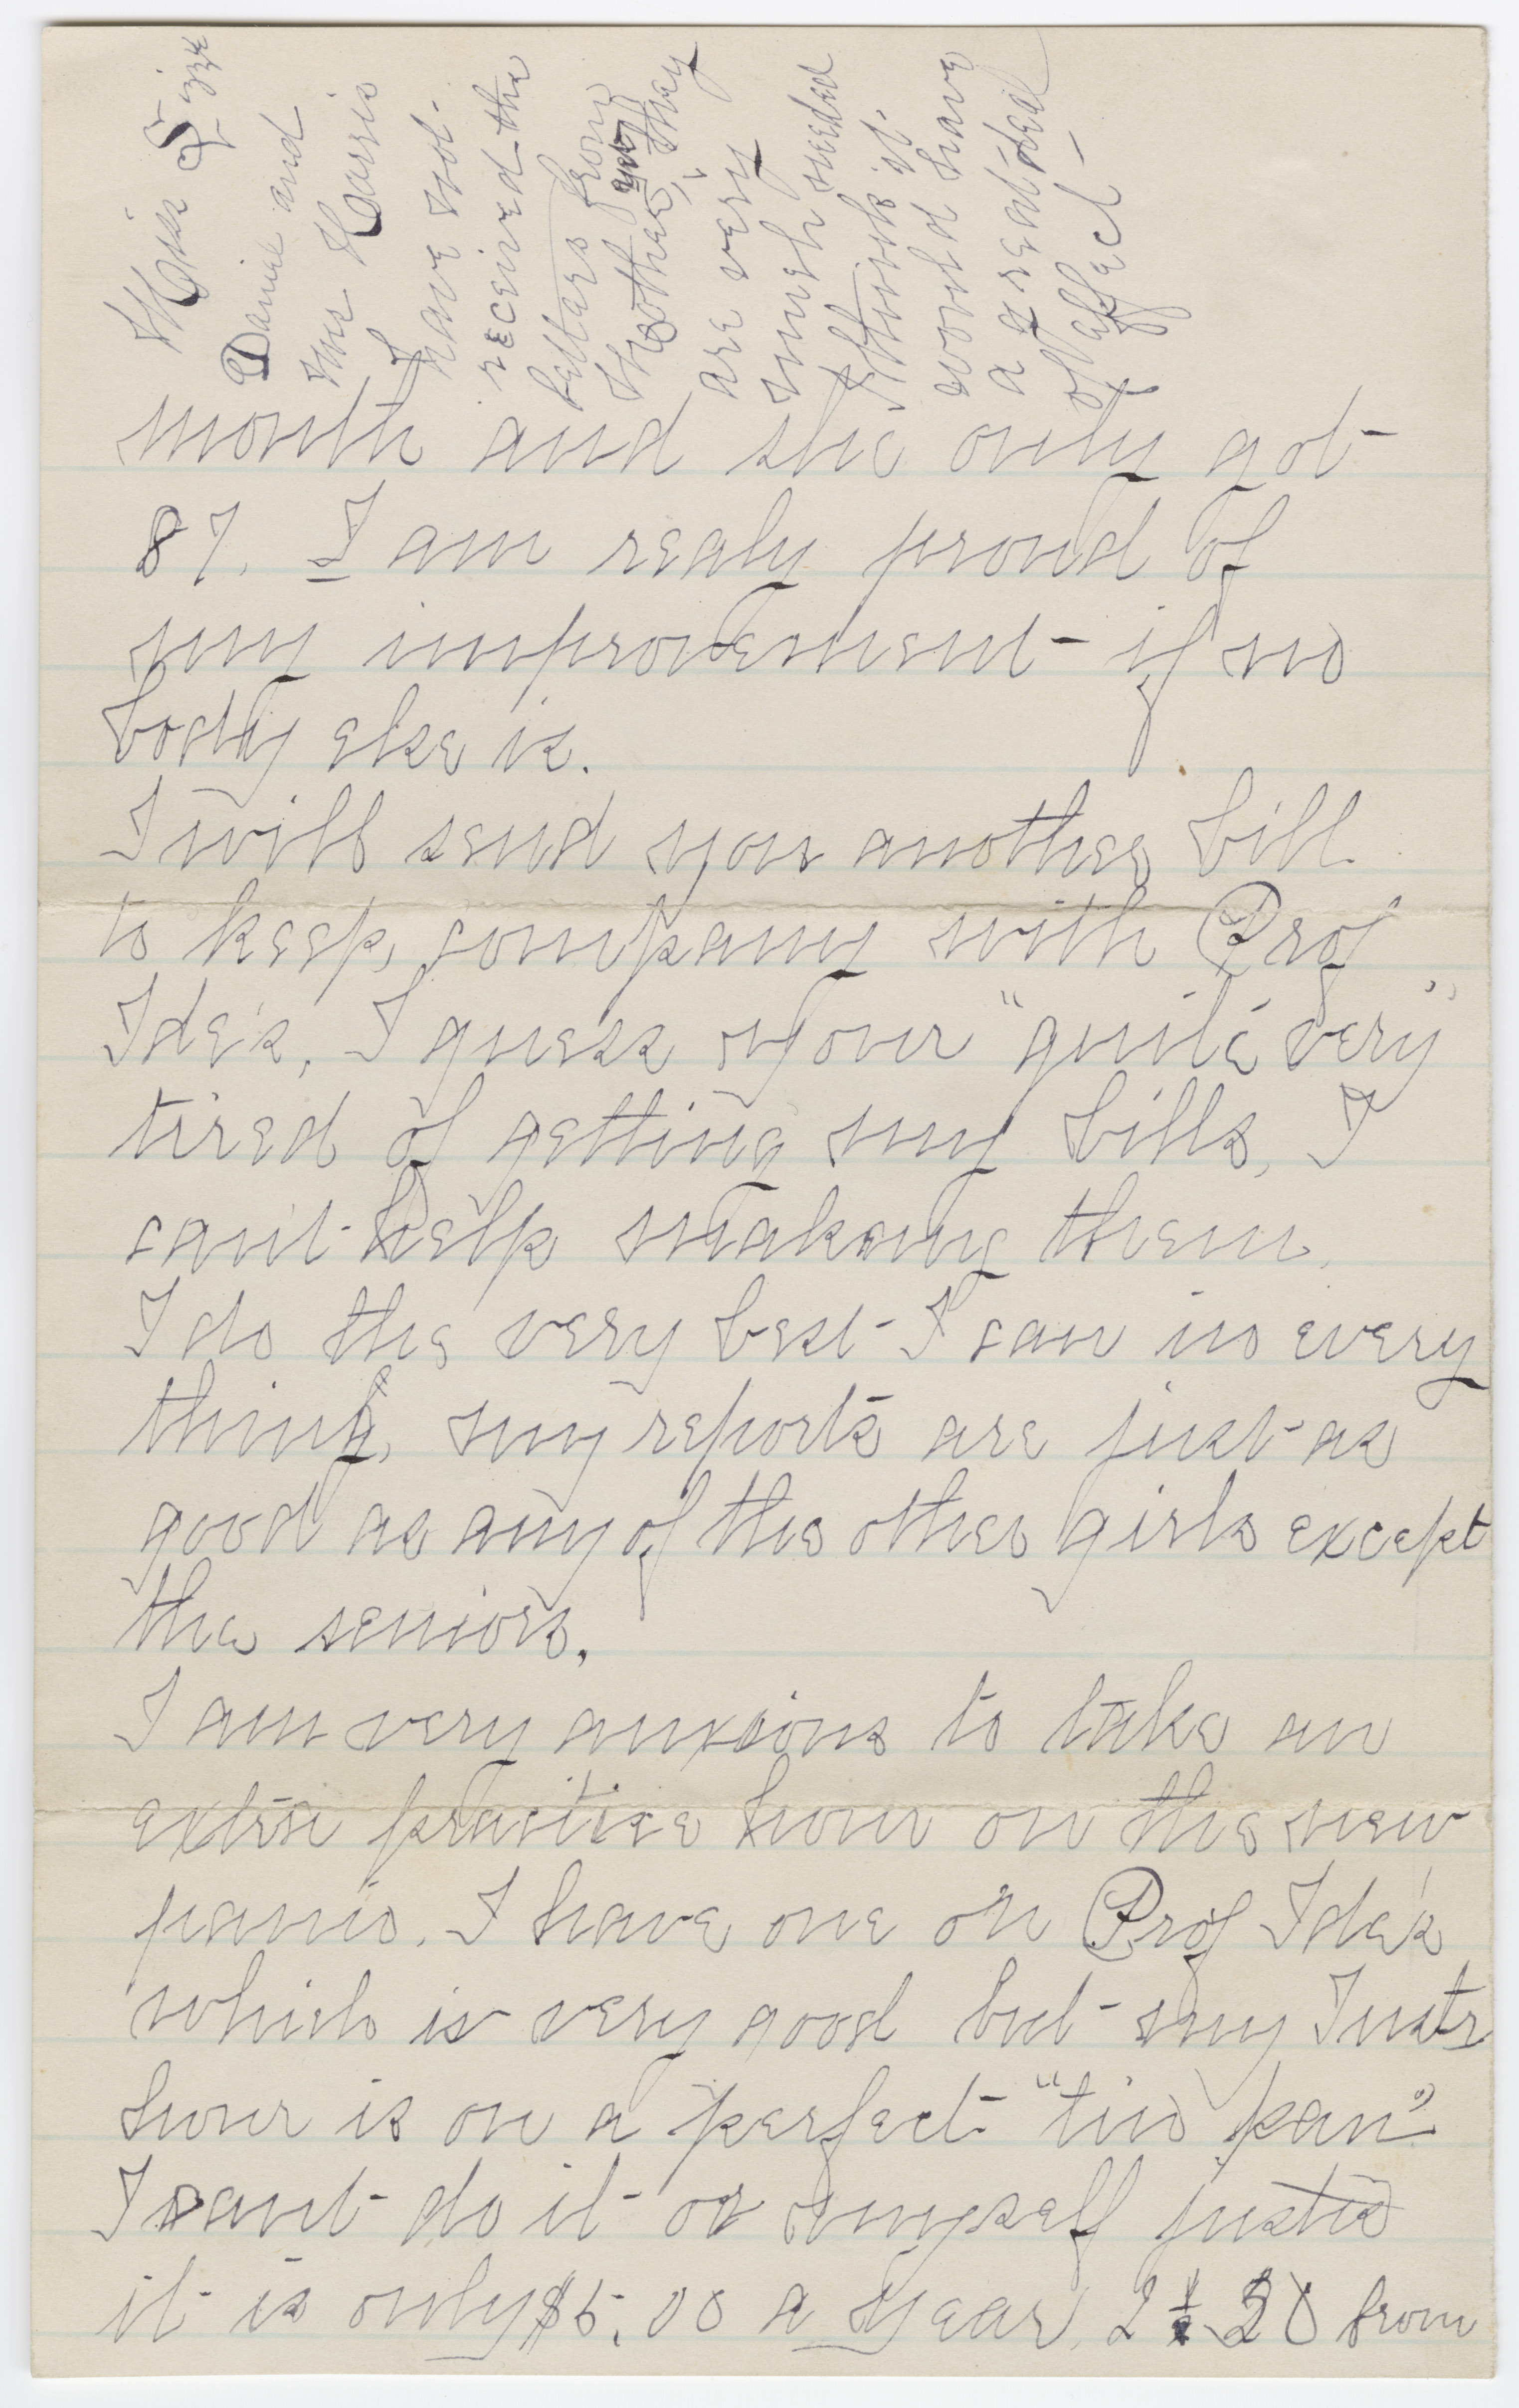 Miss Lizze
Danie and
Mrs Harris
have not
received the
letters from
Mother yet, they
are very
much needed
I think it
would have
a great deal
of affect
month and she only got
87. I am realy proud of
my improvement if no
body else is.
I will send you another bill
to keep company with Prof
Ide's, I guess your "quite very"
tired of getting my bills, I
can't help making them.
I do the very best I can in every
thing, my reports are just as
good as any of the other girls except
the seniors.
I am very anxious to take an
extra practice hour on the new
panio. I have one on Prof Ide's
which is very good but my Instr
hour is on a perfect "tin pan"
I cant do it or myself justis
it is only $5.00 a year, 2½ from